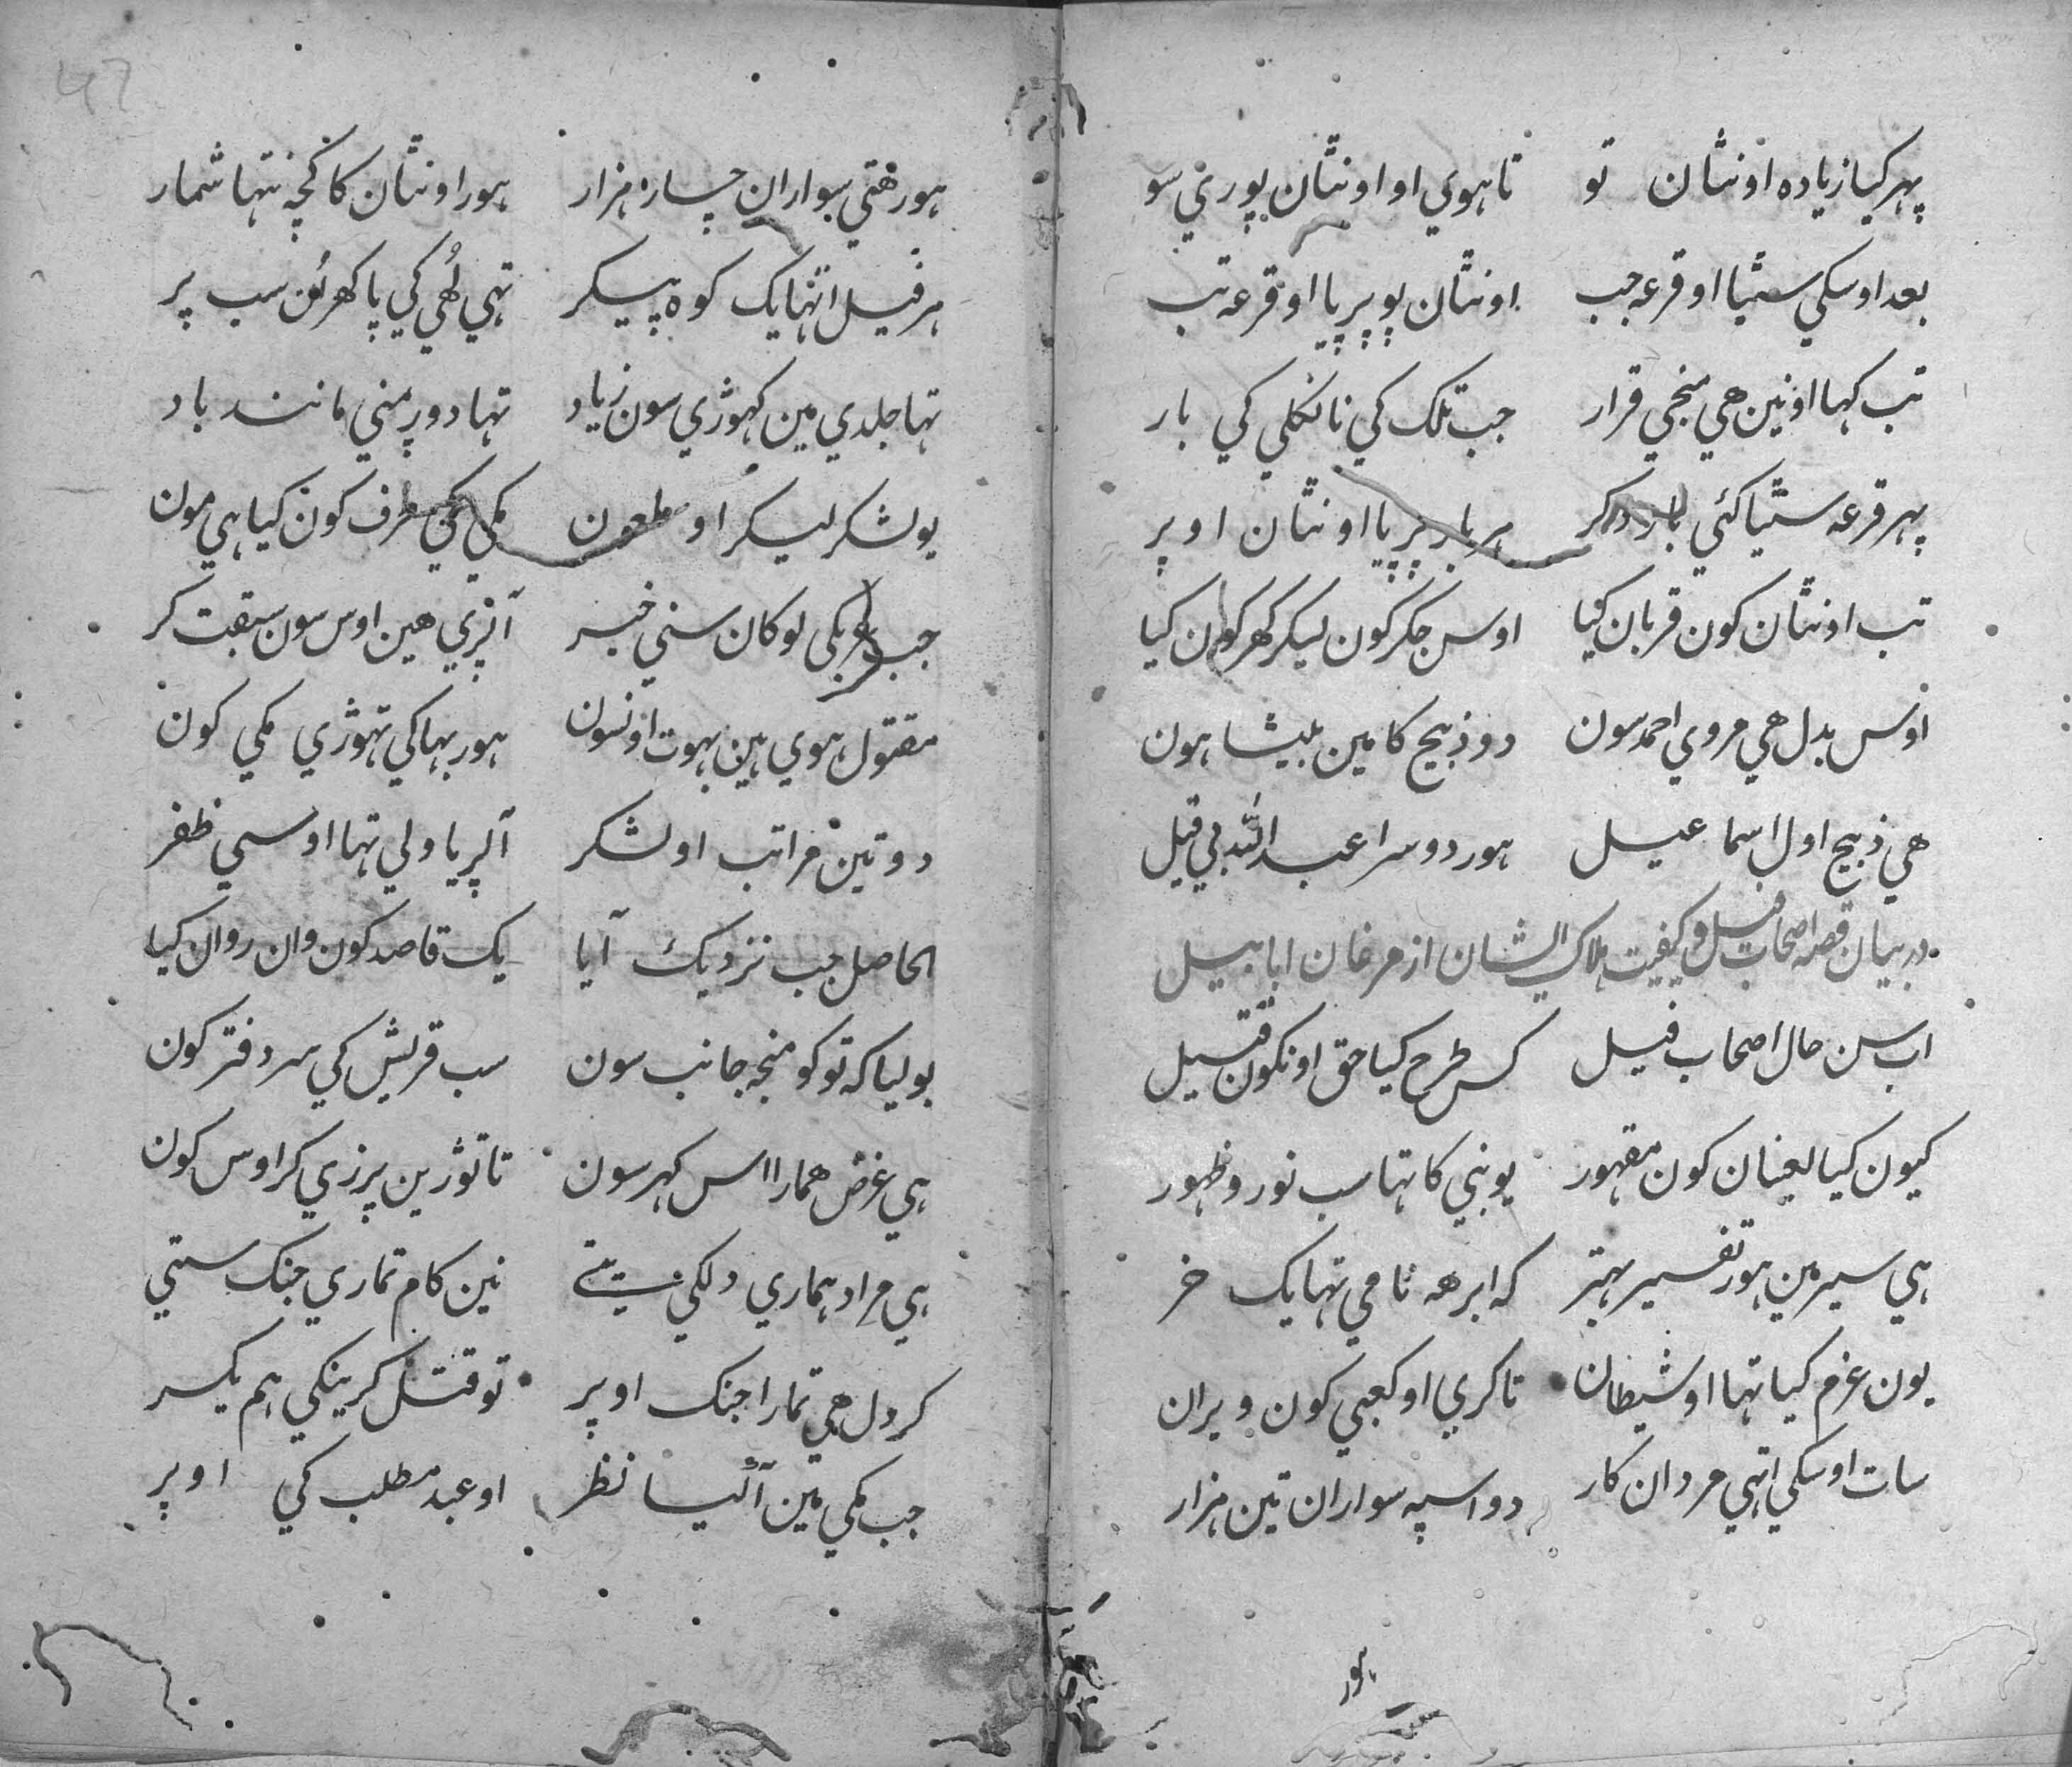 پہر کیا زیادہ اونٹان تو تا ہوي او اونٹان پوري سو
بعد اوسکي سٹیا او قرعہ جب اونٹان پو پریا او قرعہ تب
تب کہا او نین هي منجي قرار جب تلک کي نا نکلي کي بار
پہر قرعہ سٹیا کئي بار دکر ہر بار پریا اونٹان اوپر
تب اونٹان کون قربان کیا اوس جکر کون لیکر کھر کون کیا
اوس بدل هي مروي احمد سون دو ذبیح کا مین بیٹا ہون
هي ذبیح اول اسماعیل ہور دوسرا عبد اللہ بي قیل
در بیان قصہ اصحاب فیل و کیفیت ہلاک ایشان از مرغان ابابیل
اب سن حال اصحاب فیل کس طرح کیا حق اونکون قتیل
کیون کیا لعینان کون مقہور یو نبي کا تہا سب نور و ظہور
ہي سیر مین ہور تفسیر بہتر کہ ابرهہ نامي تہا یک خر
یون عزم کیا تہا او شیطان تا کري او کعبي کون ویران
سات اوسکي اتہي مردان کار دو اسپہ سواران تین ہزار
ہور
ہور هتي سواران چار ہزار ہور اونٹان کا کچہ نتہا شمار
ہر فیل اتہا یک کوہ پیکر تہي لُهي کي پاکھر اُن سب پر
تہا جلدي مین کہوڑي سون زیاد تہا دوڑ منے مانند باد
یو لشکر لیکر او ملعون مکي کي طرف کون کیا ہي مون
جب کي لوکان سني خبر آ پڑي هین اوس سون سبقت کر
مقتول ہوي ہین بہوت اونون ہور بہاکي تہوڑي مکي کون
دو تین مراتب او لشکر آ پریا ولي تہا اوسي ظفر
الحاصل جب نزدیک آیا یک قاصد کون وان روان کیا
بولیا کہ تو کو منجہ جانب سون سب قریش کي سر دفتر کون
ہي غرض همارا اس کہر سون تا توڑین پرزي کر اوس کون
ہي مراد ہماري دلکي ستے نین کام تماري جنک ستي
کر دل هي تمارا جنک اوپر تو قتل کرینکي ہم یکسر
جب مکي مین آئیا نظر او عبد مطلب کي اوپر